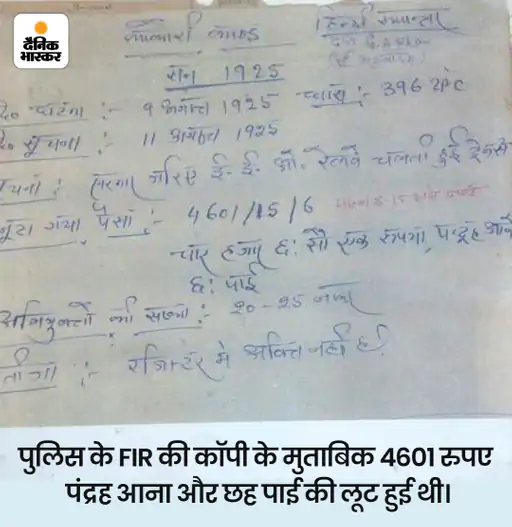 दैनिक
भास्कर
काकोरी काण्ड
हिन्दी रूपान्तर
सन 1925
दि० घटना :- 9 अगस्त 1925 धारा :- 396 IPC
दि० सूचना :- 11 अगस्त 1925
सूचना :- जरिए ई. ई. ओ. रेलवे चलती हुई ट्रेन से
लूटा गया पैसा :- 4601/15/6
चार हजार छः सौ एक रूपया, पन्द्रह आने
छः पाई
अभियुक्तों की संख्या :- २०-२५ नफर
नतीजा :- रजिस्टर मे अंकित नहीं है।
पुलिस के FIR की कॉपी के मुताबिक 4601 रुपए
पंद्रह आना और छह पाई की लूट हुई थी।